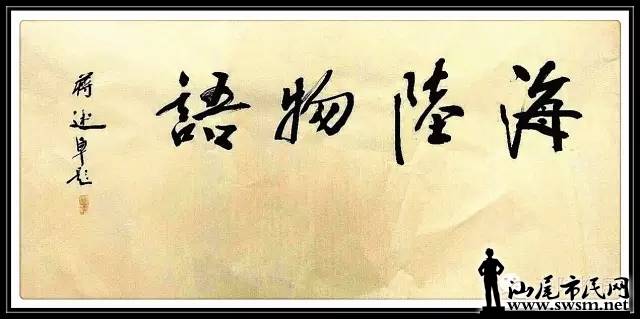 海陸物語
蔣述卓題
汕尾市民网
www.swsm.net